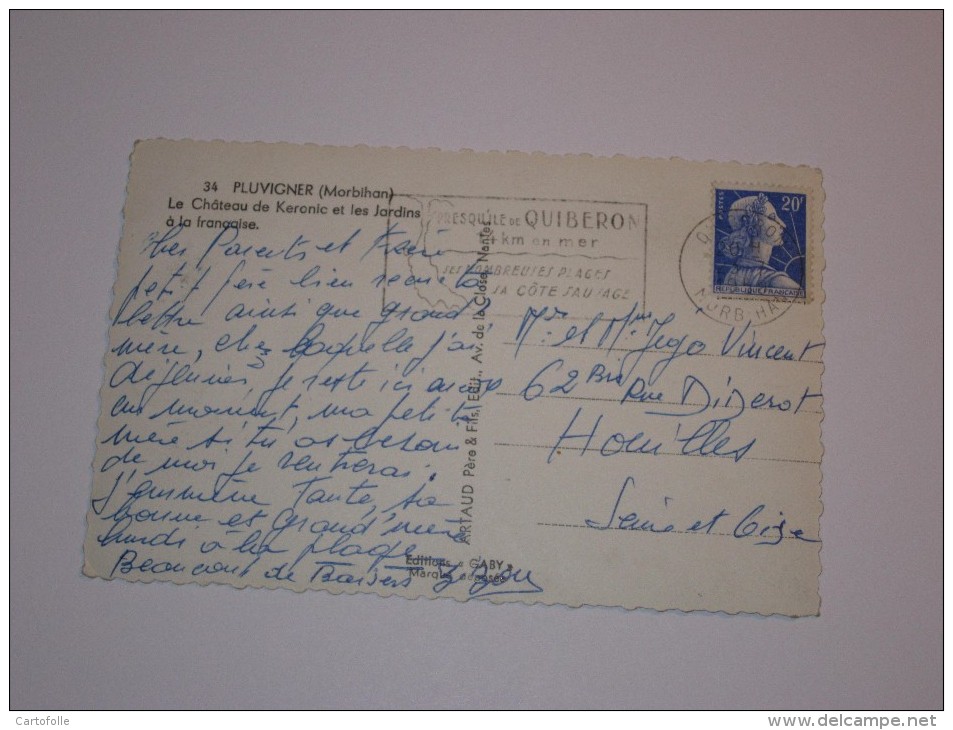 34 PLUVIGNER (Morbihan)
Le Château de Keronic et les Jardins
à la française.
PRESQU'ILE DE QUIBERON
km en mer
SES NOMBREUSES PLAGES
SA CÔTE SAUVAGE
20F
POSTES
REPUBLIQUE FRANÇAISE
MORBIHAN
Chers Parents et
petit père bien reçu ta
lettre ainsi que grand'
mère, chez laquelle j'ai
déjeuner, je reste ici
en moment, ma petite
mère si tu as besoin
de moi je rentrerai.
J'emmène Tante, sa
bonne et grand'mère
lundi à la plage
Beaucoup de Baisers
ARTAUD Père & Fils, Edit., Av. de la Close, Nantes
Editions "GABY"
Marque déposée
Mr et Mme Jego Vincent
62 Bis Rue Diderot
Houilles
Seine et Oise
Cartofolle
delcampe.net